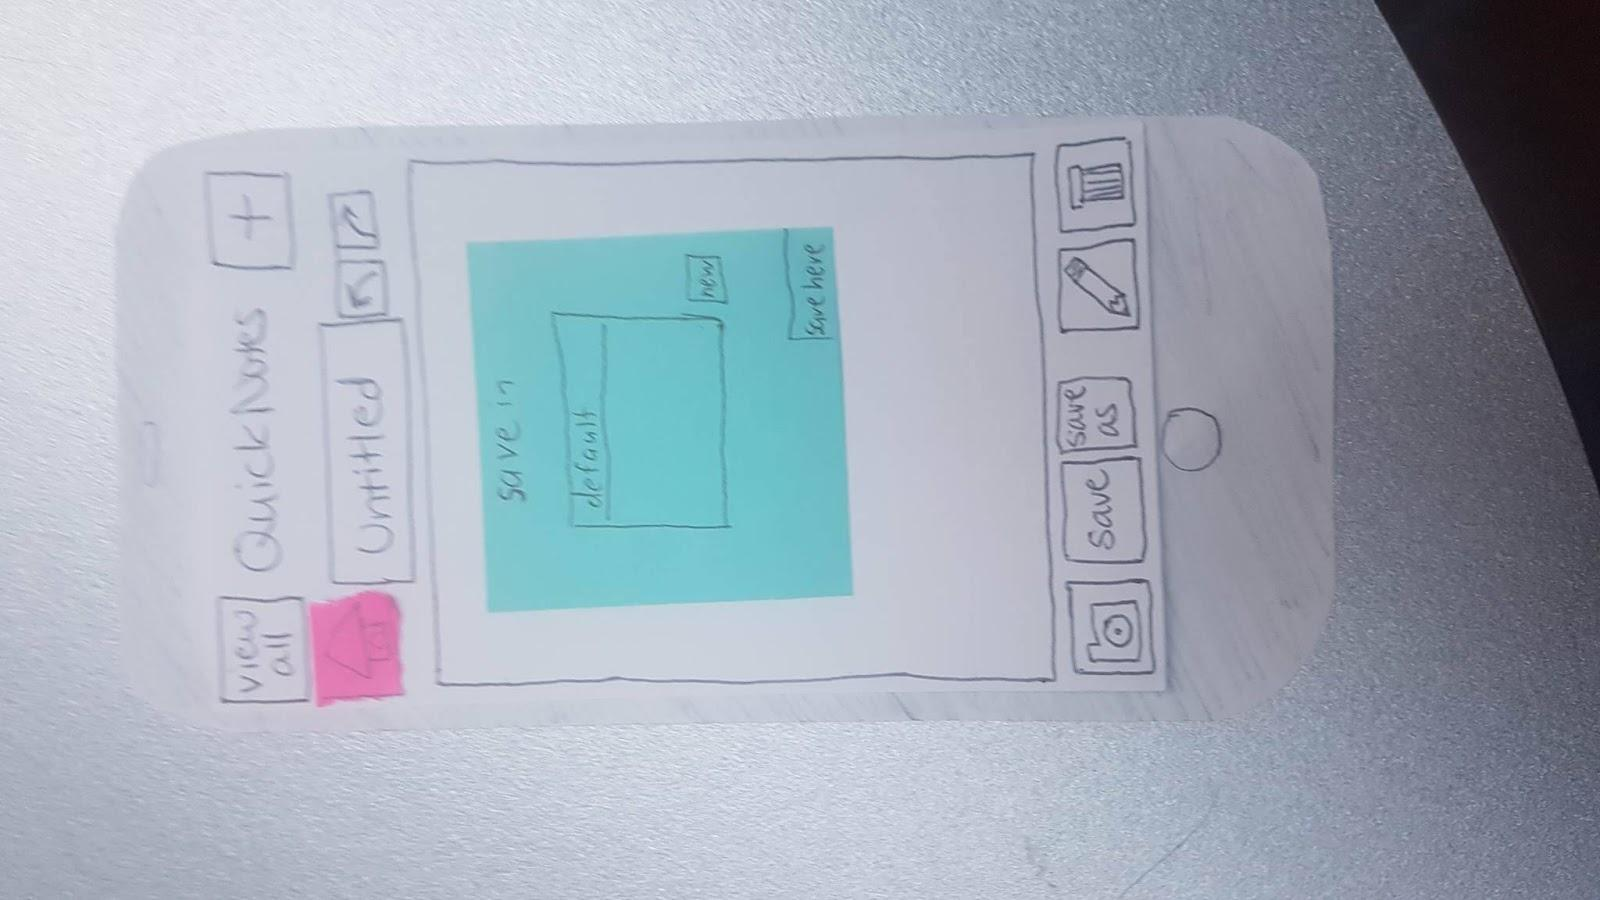 view
all
QuickNotes
+
Untitled
save in
default
new
save here
save
save
as